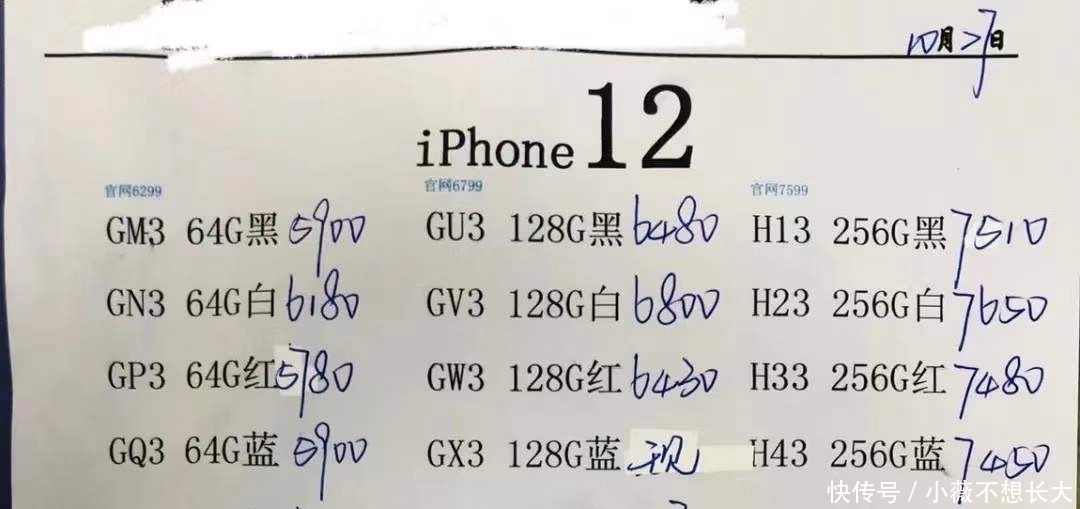 10月27日
iPhone 12
官网6299 官网6799 官网7599
GM3 64G黑 5900 GU3 128G黑 6480 H13 256G黑 7510
GN3 64G白 6180 GV3 128G白 6800 H23 256G白 7650
GP3 64G红 5780 GW3 128G红 6430 H33 256G红 7480
GQ3 64G蓝 5900 GX3 128G蓝 现 H43 256G蓝 7450
快传号 / 小薇不想长大